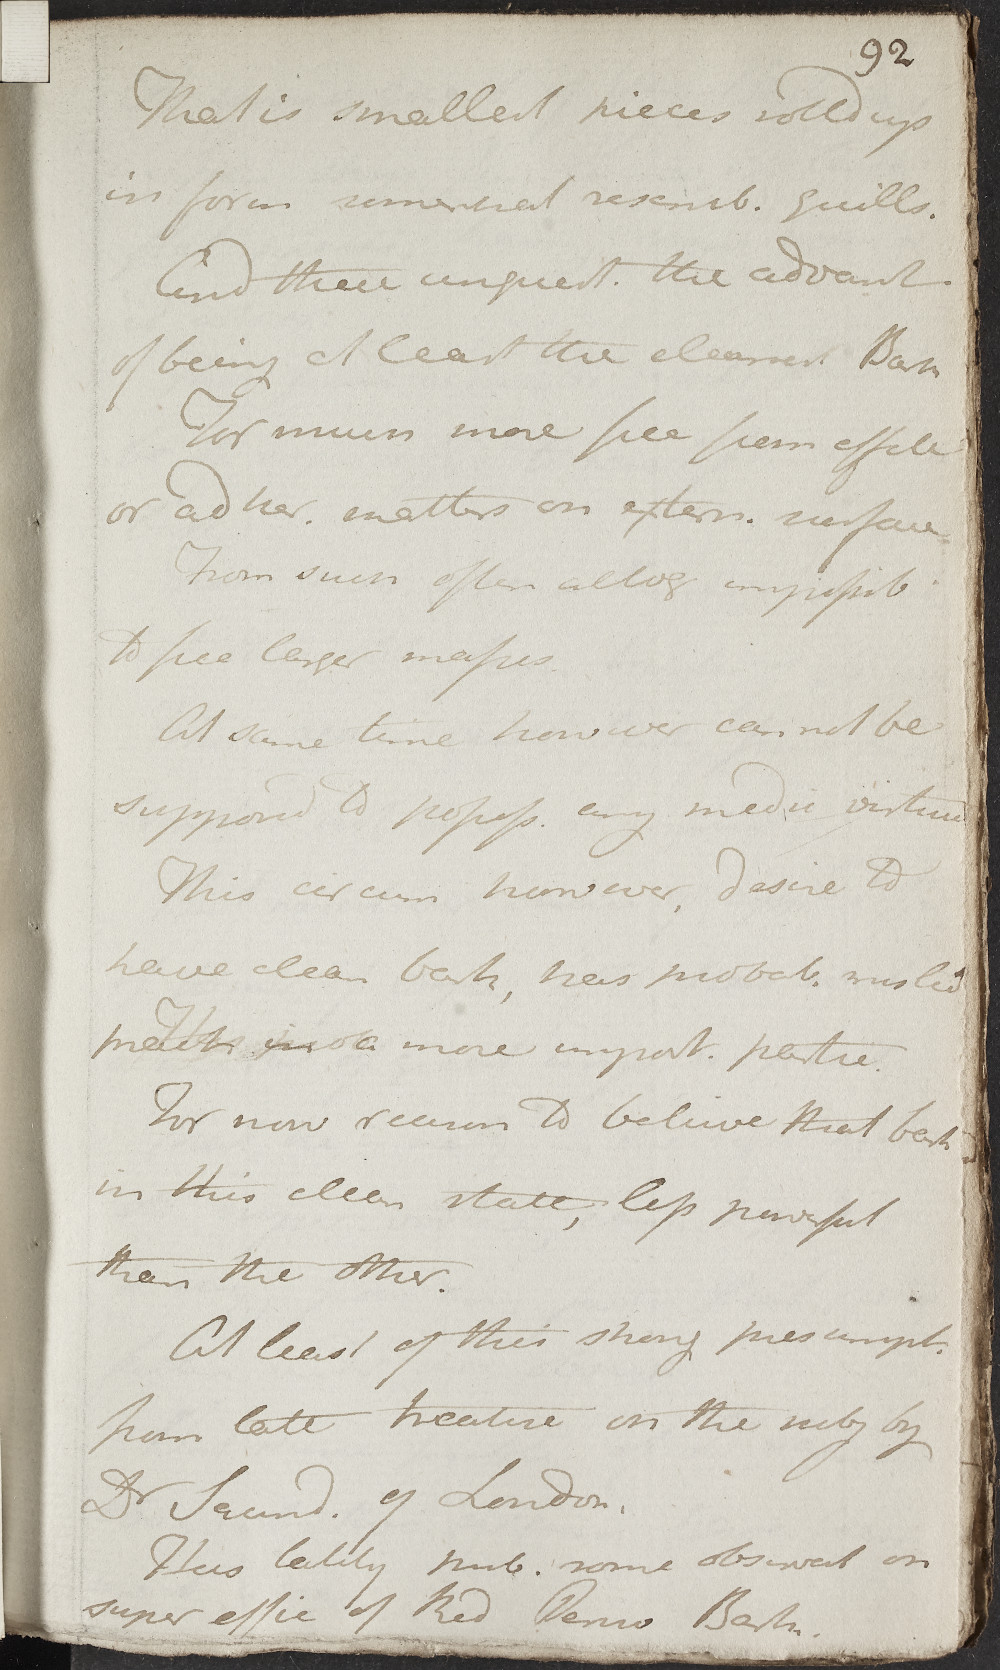 92
That is smallest pieces rolld up
in form somewhat resemb. quills.
And these unquest. the advant.
of being at least the cleanest Bark
For much more free from
or adher. matters on extern. surface
From such often altog impossib
to free larger masses.
At same time however cannot be
supposed to possess. any medic virtue
This circum however, desire to
have clean bark, has probab. misled
more import. partic.
For now reason to believe that bark
in this clean state, less powerful
than the other.
At least of this strong presumpt.
from late treatise on the subj by
Dr Saund. of London.
Has lately pub. some observat on
super effic of Red Peruv Bark.